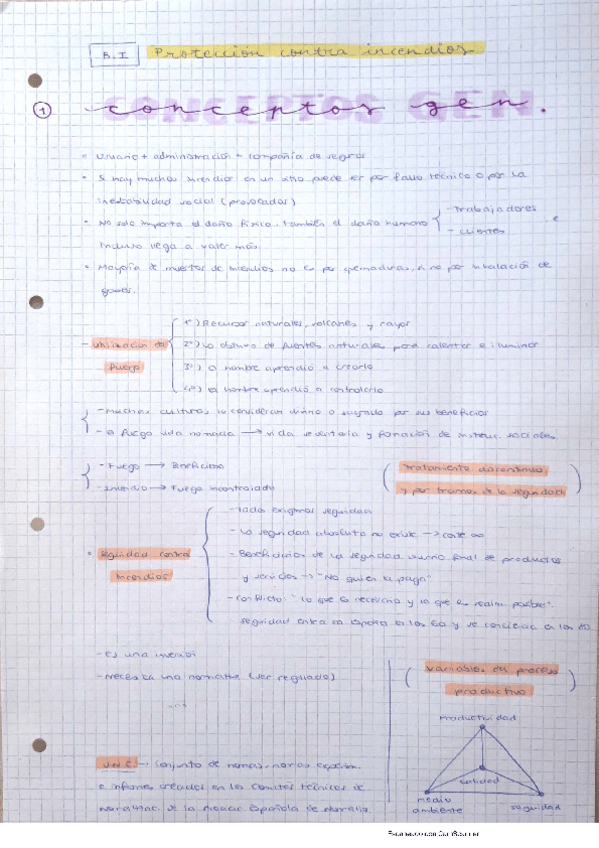 B.I Protección contra incendios
1 conceptos gen.
CONCEPTOS GEN.
- Usuario + administración + compañía de seguros
- Si hay muchos incendios en un sitio puede ser por fallo técnico o por la
inestabilidad social (provocados)
- No solo importa el daño físico, también el daño humano - Trabajadores
- clientes
e
incluso llega a valer más.
- Mayoría de muertes de incendios no es por quemaduras, si no por inhalación de
gases.
- Utilización del fuego
1º) Recursos naturales, volcanes y rayos
2º) Lo obtuvo de fuentes naturales para calentar e iluminar
3º) el hombre aprendió a crearlo
4º) el hombre aprendió a controlarlo
- Muchas culturas lo consideran divino o sagrado por sus beneficios
- fuego vida nomada → vida sedentaria y formación de sociales
- Fuego → Beneficioso
- Incendio → Fuego incontrolado
(Tratamiento discontinuo
y por tramos de la seguridad)
- Seguridad contra incendios
- Todos exigimos seguridad
- La seguridad absoluta no existe → coste ∞
- Beneficiarios de la seguridad usuario final de productos
y servicios → "No quiere la paga"
- Conflicto: "lo que es necesario y lo que es realm. posible".
seguridad entra en España en los 60 y se en los 80
- es una
- Necesita una normativa (ser regulado)
(Variables del proceso
productivo)
Productividad
calidad
medio
ambiente
seguridad
UNE → conjunto de normas, normas experim.
e informes creados en los Comités Técnicos de
de la Española de
Escaneado con CamScanner